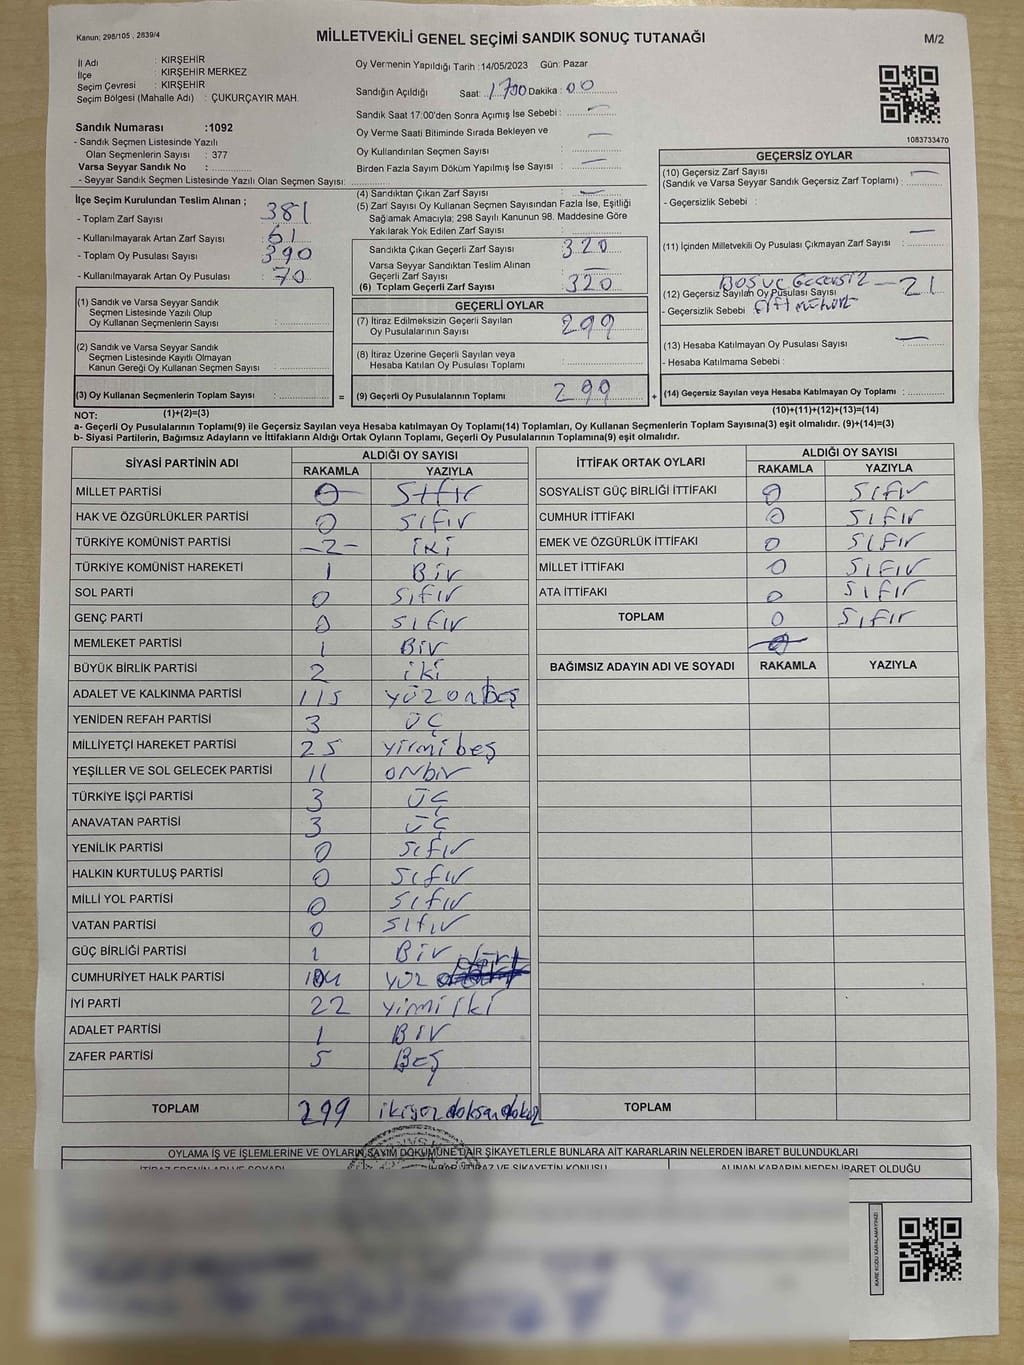 Kanun; 298/105 , 2839/4
MİLLETVEKİLİ GENEL SEÇİMİ SANDIK SONUÇ TUTANAĞI
M/2
İl Adı : KIRŞEHİR
İlçe : KIRŞEHİR MERKEZ
Seçim Çevresi : KIRŞEHİR
Seçim Bölgesi (Mahalle Adı) : ÇUKURÇAYIR MAH.
Sandık Numarası :1092
- Sandık Seçmen Listesinde Yazılı
Olan Seçmenlerin Sayısı : 377
Varsa Seyyar Sandık No :
- Seyyar Sandık Seçmen Listesinde Yazılı Olan Seçmen Sayısı:
Oy Vermenin Yapıldığı Tarih :14/05/2023 Gün: Pazar
Sandığın Açıldığı Saat: 1700 Dakika : 00
Sandık Saat 17:00'den Sonra Açımış İse Sebebi : —
Oy Verme Saati Bitiminde Sırada Bekleyen ve
Oy Kullandırılan Seçmen Sayısı —
Birden Fazla Sayım Döküm Yapılmış İse Sayısı : —
1083733470
İlçe Seçim Kurulundan Teslim Alınan ;
- Toplam Zarf Sayısı : 381
- Kullanılmayarak Artan Zarf Sayısı : 61
- Toplam Oy Pusulası Sayısı : 390
- Kullanılmayarak Artan Oy Pusulası : 70
(1) Sandık ve Varsa Seyyar Sandık
Seçmen Listesinde Yazılı Olup
Oy Kullanan Seçmenlerin Sayısı :
(2) Sandık ve Varsa Seyyar Sandık
Seçmen Listesinde Kayıtlı Olmayan
Kanun Gereği Oy Kullanan Seçmen Sayısı :
(3) Oy Kullanan Seçmenlerin Toplam Sayısı :
(1)+(2)=(3)
(4) Sandıktan Çıkan Zarf Sayısı : —
(5) Zarf Sayısı Oy Kullanan Seçmen Sayısından Fazla İse, Eşitliği
Sağlamak Amacıyla; 298 Sayılı Kanunun 98. Maddesine Göre
Yakılarak Yok Edilen Zarf Sayısı :
Sandıkta Çıkan Geçerli Zarf Sayısı : 320
Varsa Seyyar Sandıktan Teslim Alınan
Geçerli Zarf Sayısı : —
(6) Toplam Geçerli Zarf Sayısı : 320
GEÇERLİ OYLAR
(7) İtiraz Edilmeksizin Geçerli Sayılan
Oy Pusulalarının Sayısı : 299
(8) İtiraz Üzerine Geçerli Sayılan veya
Hesaba Katılan Oy Pusulası Toplamı :
= (9) Geçerli Oy Pusulalarının Toplamı : 299 +
GEÇERSİZ OYLAR
(10) Geçersiz Zarf Sayısı
(Sandık ve Varsa Seyyar Sandık Geçersiz Zarf Toplamı) : —
- Geçersizlik Sebebi :
(11) İçinden Milletvekili Oy Pusulası Çıkmayan Zarf Sayısı : —
BOŞ VE GEÇERSİZ — 21
(12) Geçersiz Sayılan Oy Pusulası Sayısı
- Geçersizlik Sebebi : çift mühür
(13) Hesaba Katılmayan Oy Pusulası Sayısı : —
- Hesaba Katılmama Sebebi :
(14) Geçersiz Sayılan veya Hesaba Katılmayan Oy Toplamı :
(10)+(11)+(12)+(13)=(14)
NOT:
a- Geçerli Oy Pusulalarının Toplamı(9) ile Geçersiz Sayılan veya Hesaba katılmayan Oy Toplamı(14) Toplamları, Oy Kullanan Seçmenlerin Toplam Sayısına(3) eşit olmalıdır. (9)+(14)=(3)
b- Siyasi Partilerin, Bağımsız Adayların ve İttifakların Aldığı Ortak Oyların Toplamı, Geçerli Oy Pusulalarının Toplamına(9) eşit olmalıdır.
SİYASİ PARTİNİN ADI ALDIĞI OY SAYISI
RAKAMLA YAZIYLA
MİLLET PARTİSİ 0 Sıfır
HAK VE ÖZGÜRLÜKLER PARTİSİ 0 Sıfır
TÜRKİYE KOMÜNİST PARTİSİ -2- iki
TÜRKİYE KOMÜNİST HAREKETİ 1 Bir
SOL PARTİ 0 Sıfır
GENÇ PARTİ 0 Sıfır
MEMLEKET PARTİSİ 1 Bir
BÜYÜK BİRLİK PARTİSİ 2 iki
ADALET VE KALKINMA PARTİSİ 115 yüzonBeş
YENİDEN REFAH PARTİSİ 3 ÜÇ
MİLLİYETÇİ HAREKET PARTİSİ 25 yirmi beş
YEŞİLLER VE SOL GELECEK PARTİSİ 11 onbir
TÜRKİYE İŞÇİ PARTİSİ 3 ÜÇ
ANAVATAN PARTİSİ 3 ÜÇ
YENİLİK PARTİSİ 0 Sıfır
HALKIN KURTULUŞ PARTİSİ 0 Sıfır
MİLLİ YOL PARTİSİ 0 Sıfır
VATAN PARTİSİ 0 Sıfır
GÜÇ BİRLİĞİ PARTİSİ 1 Bir
CUMHURİYET HALK PARTİSİ 104 yüz dört
İYİ PARTİ 22 yirmi iki
ADALET PARTİSİ 1 Bir
ZAFER PARTİSİ 5 Beş
TOPLAM 299 ikiyüzdoksandokuz
İTTİFAK ORTAK OYLARI ALDIĞI OY SAYISI
RAKAMLA YAZIYLA
SOSYALİST GÜÇ BİRLİĞİ İTTİFAKI 0 Sıfır
CUMHUR İTTİFAKI 0 Sıfır
EMEK VE ÖZGÜRLÜK İTTİFAKI 0 Sıfır
MİLLET İTTİFAKI 0 Sıfır
ATA İTTİFAKI 0 Sıfır
TOPLAM 0 Sıfır
0
BAĞIMSIZ ADAYIN ADI VE SOYADI RAKAMLA YAZIYLA
TOPLAM
OYLAMA İŞ VE İŞLEMLERİNE VE OYLARIN SAYIM DÖKÜMÜNE DAİR ŞİKAYETLERLE BUNLARA AİT KARARLARIN NELERDEN İBARET BULUNDUKLARI
İTİRAZ EDENİN ADI VE SOYADI İHBAR, İTİRAZ VE ŞİKAYETİN KONUSU ALINAN KARARIN NEDEN İBARET OLDUĞU
KARE KODU KARALAMAYINIZ!